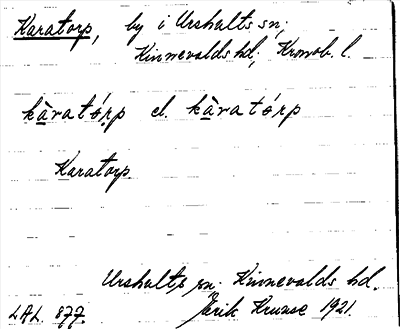 Karatorp, by i Urshults sn;
Kinnevalds hd; Kronob. l.
kàratórp el. kàratórp
Karatorp.
Urshults sn. Kinnevalds hd.
LAL. 877. Erik Kruuse 1921.